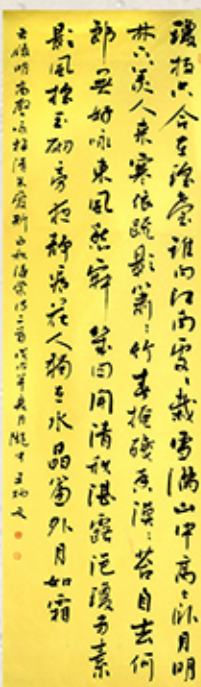 瓊姿只合在瑶臺誰向江南處〻栽雪滿山中高士卧月明
林下美人来寒依疏影蕭〻竹春掩殘香漠〻苔自去何
郎無好咏東風愁寂幾回開清秋湛露浥瓊芳素
影風摇玉砌旁夜靜看花人獨立水晶簾外月如霜
明高啓詠梅清白秋海棠詩二首